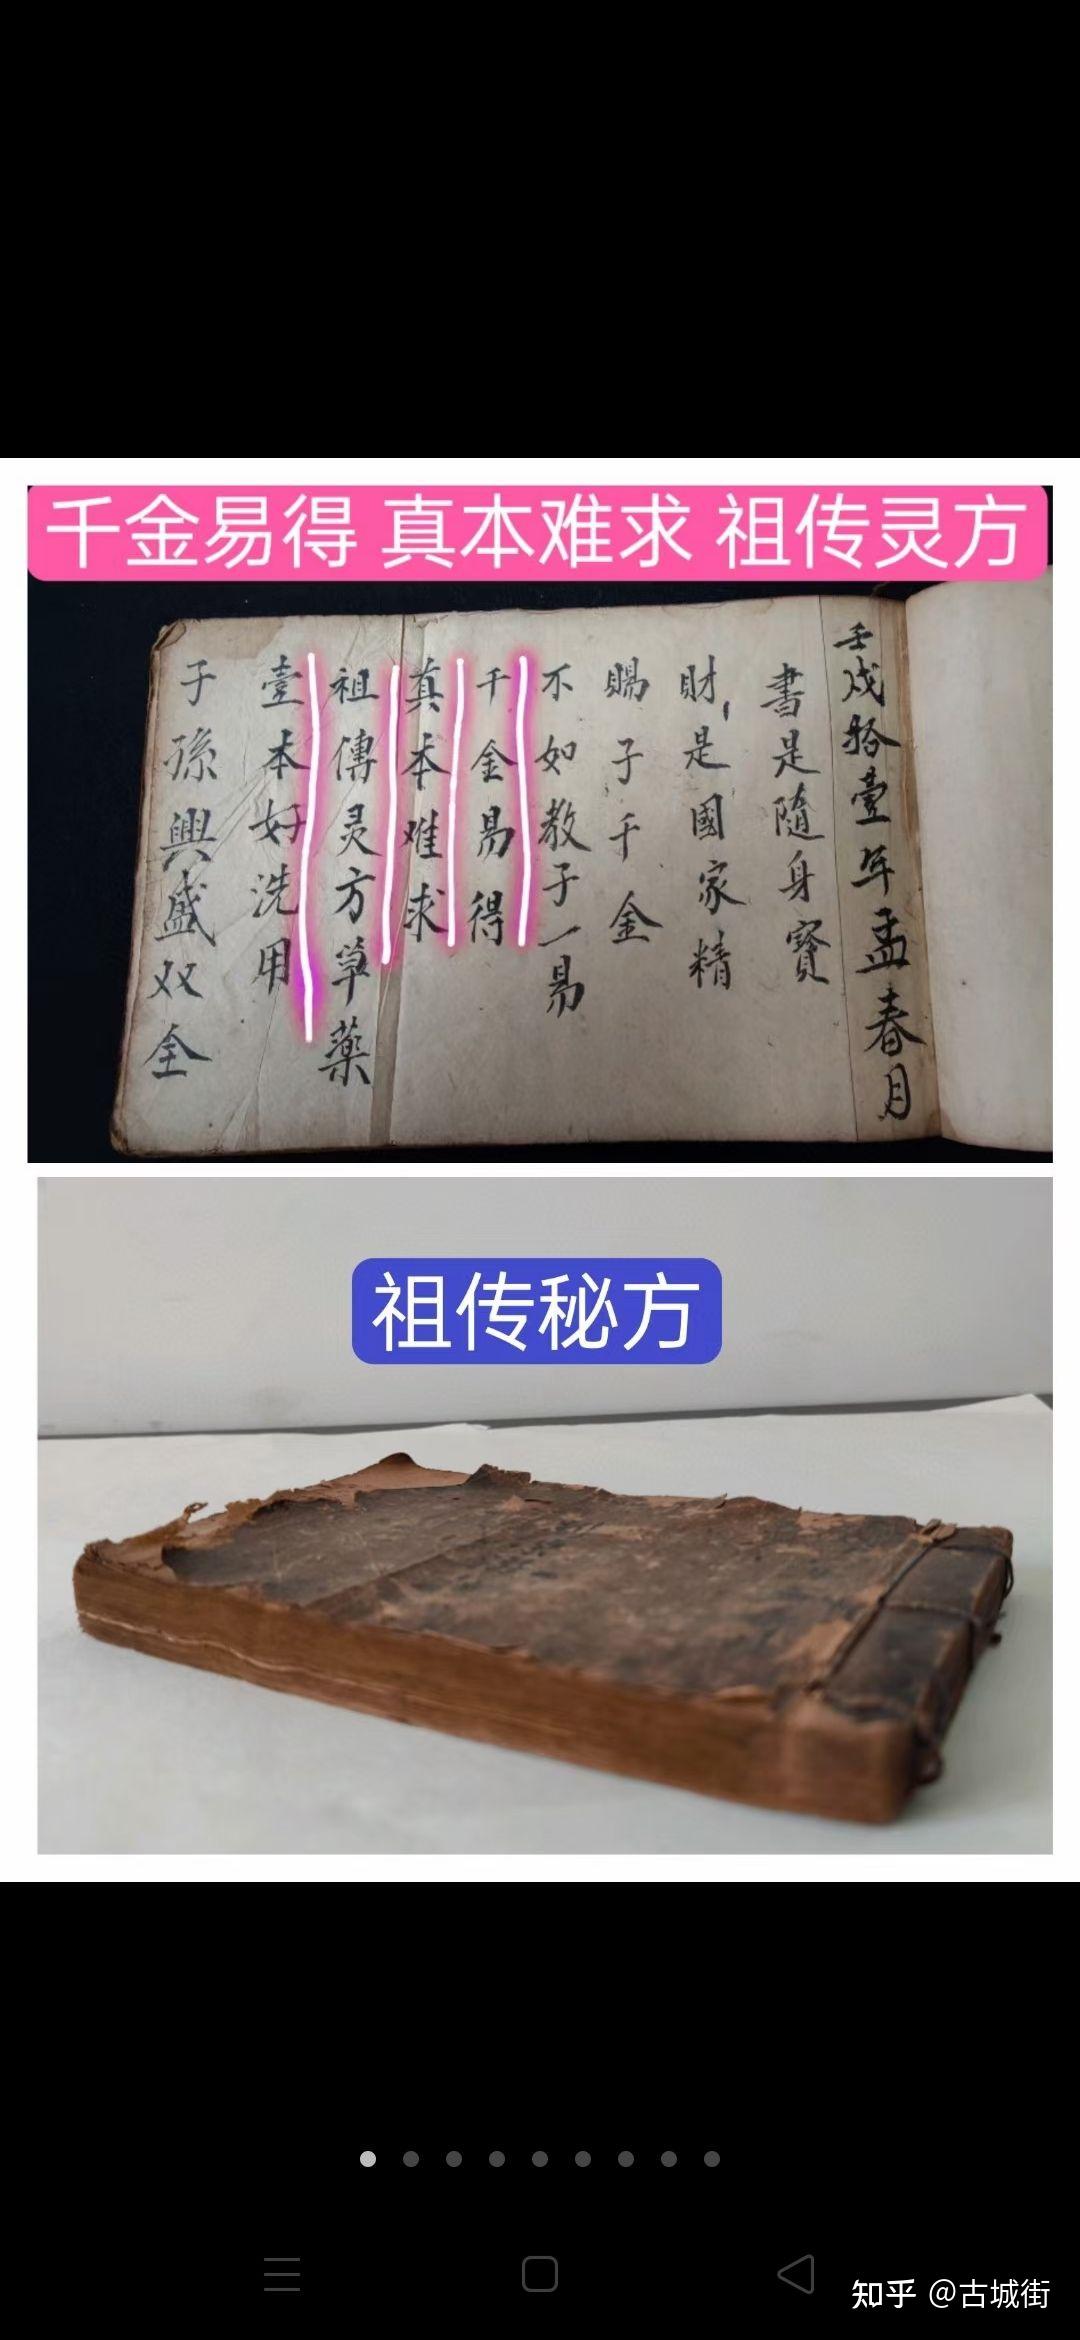 千金易得 真本难求 祖传灵方
壬戌拾壹年孟春月
書是隨身寳
財是國家精
賜子千金
不如教子一易
千金易得
真本难求
祖傳灵方草藥
壹本好洗用
子孫興盛双全
祖传秘方
知乎 @古城街